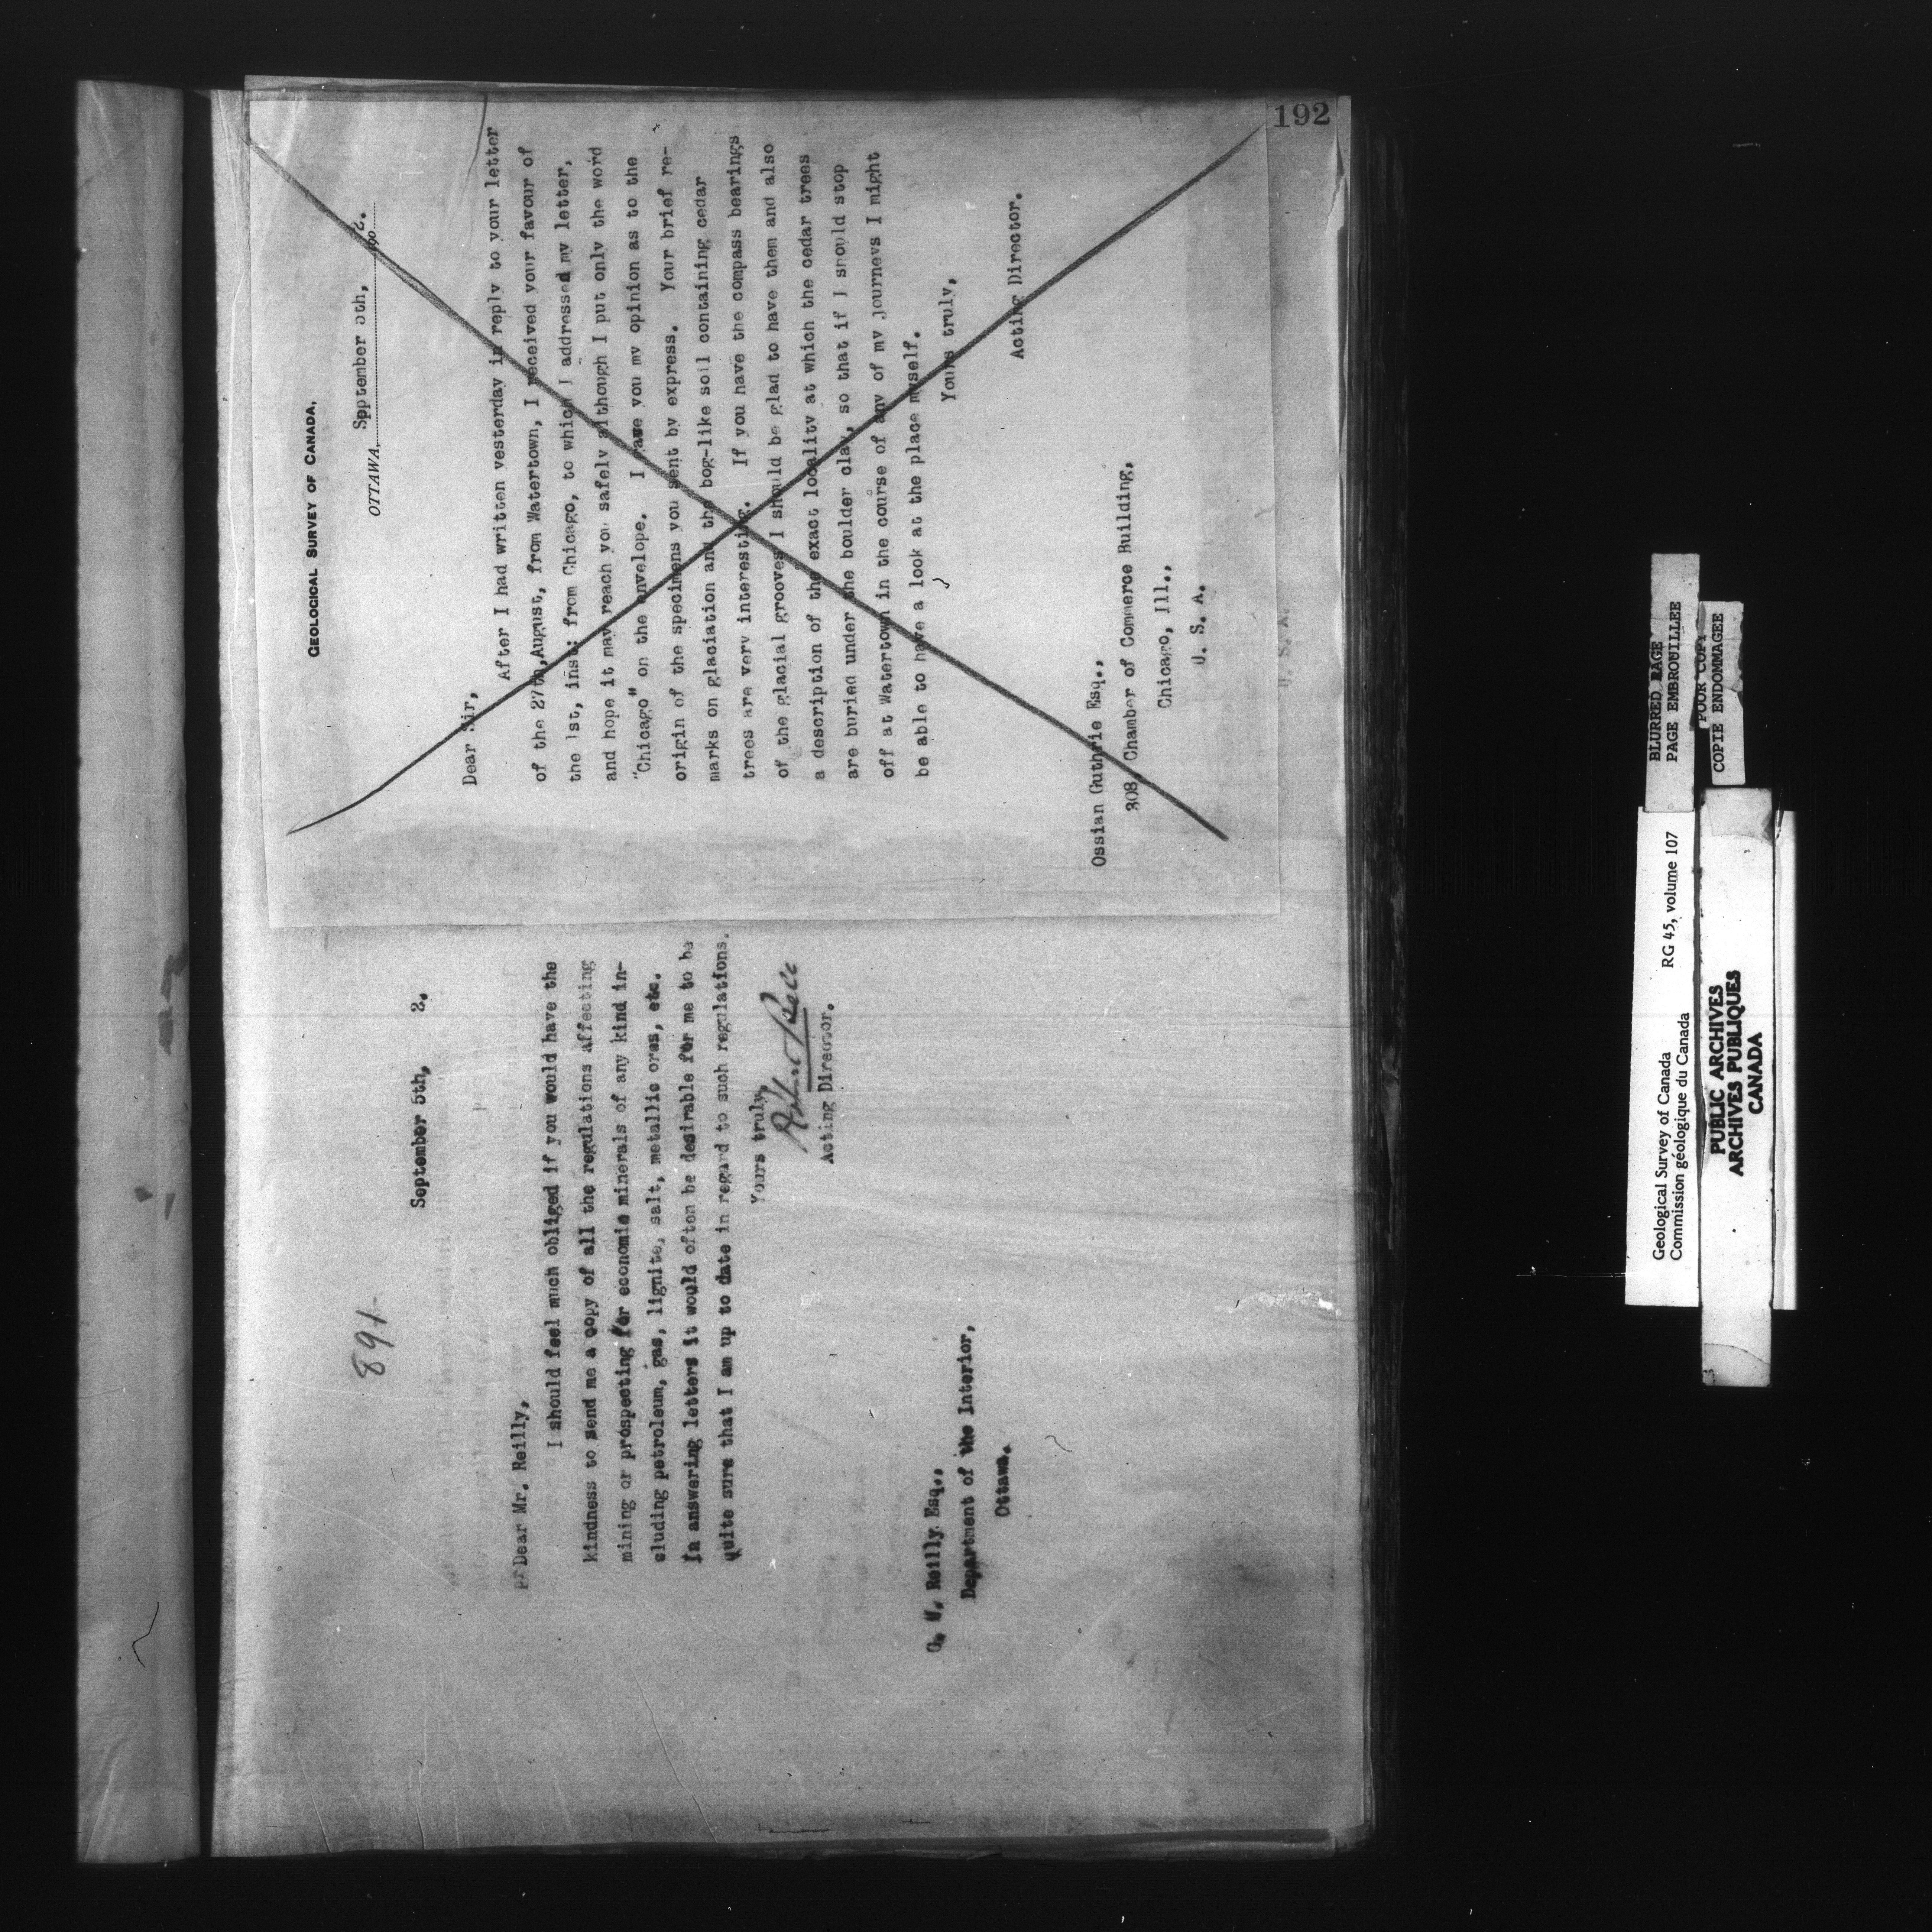 192
GEOLOGICAL SURVEY OF CANADA,
OTTAWA, September 5th, 190 2.
Dear Sir,
After I had written yesterday in reply to your letter
of the 27th, August, from Watertown, I received your favour of
the 1st, inst: from Chicago, to which I addressed my letter,
and hope it may reach you safely although I put only the word
"Chicago" on the envelope. I gave you my opinion as to the
origin of the specimens you sent by express. Your brief re-
marks on glaciation and the bog-like soil containing cedar
trees are very interesting. If you have the compass bearings
of the glacial grooves I should be glad to have them and also
a description of the exact locality at which the cedar trees
are buried under the boulder clay, so that if I should stop
off at Watertown in the course of any of my journeys I might
be able to have a look at the place myself.
Yours truly,
Acting Director.
Ossian Guthrie Esq.,
308, Chamber of Commerce Building,
Chicago, Ill.,
U. S. A.
U. S. A.
891
September 5th, 2.
Dear Mr. Reilly,
I should feel much obliged if you would have the
kindness to send me a copy of all the regulations affecting
mining or prospecting for economic minerals of any kind in-
cluding petroleum, gas, lignite, salt, metallic ores, etc.
In answering letters it would often be desirable for me to be
quite sure that I am up to date in regard to such regulations.
Yours truly,
Robert Bell
Acting Director.
Reilly Esq.,
Department of the Interior,
Ottawa.
BLURRED PAGE
PAGE EMBROUILLEE
POOR COPY
COPIE ENDOMMAGEE
Geological Survey of Canada RG 45, volume 107
Commission géologique du Canada
PUBLIC ARCHIVES
ARCHIVES PUBLIQUES
CANADA